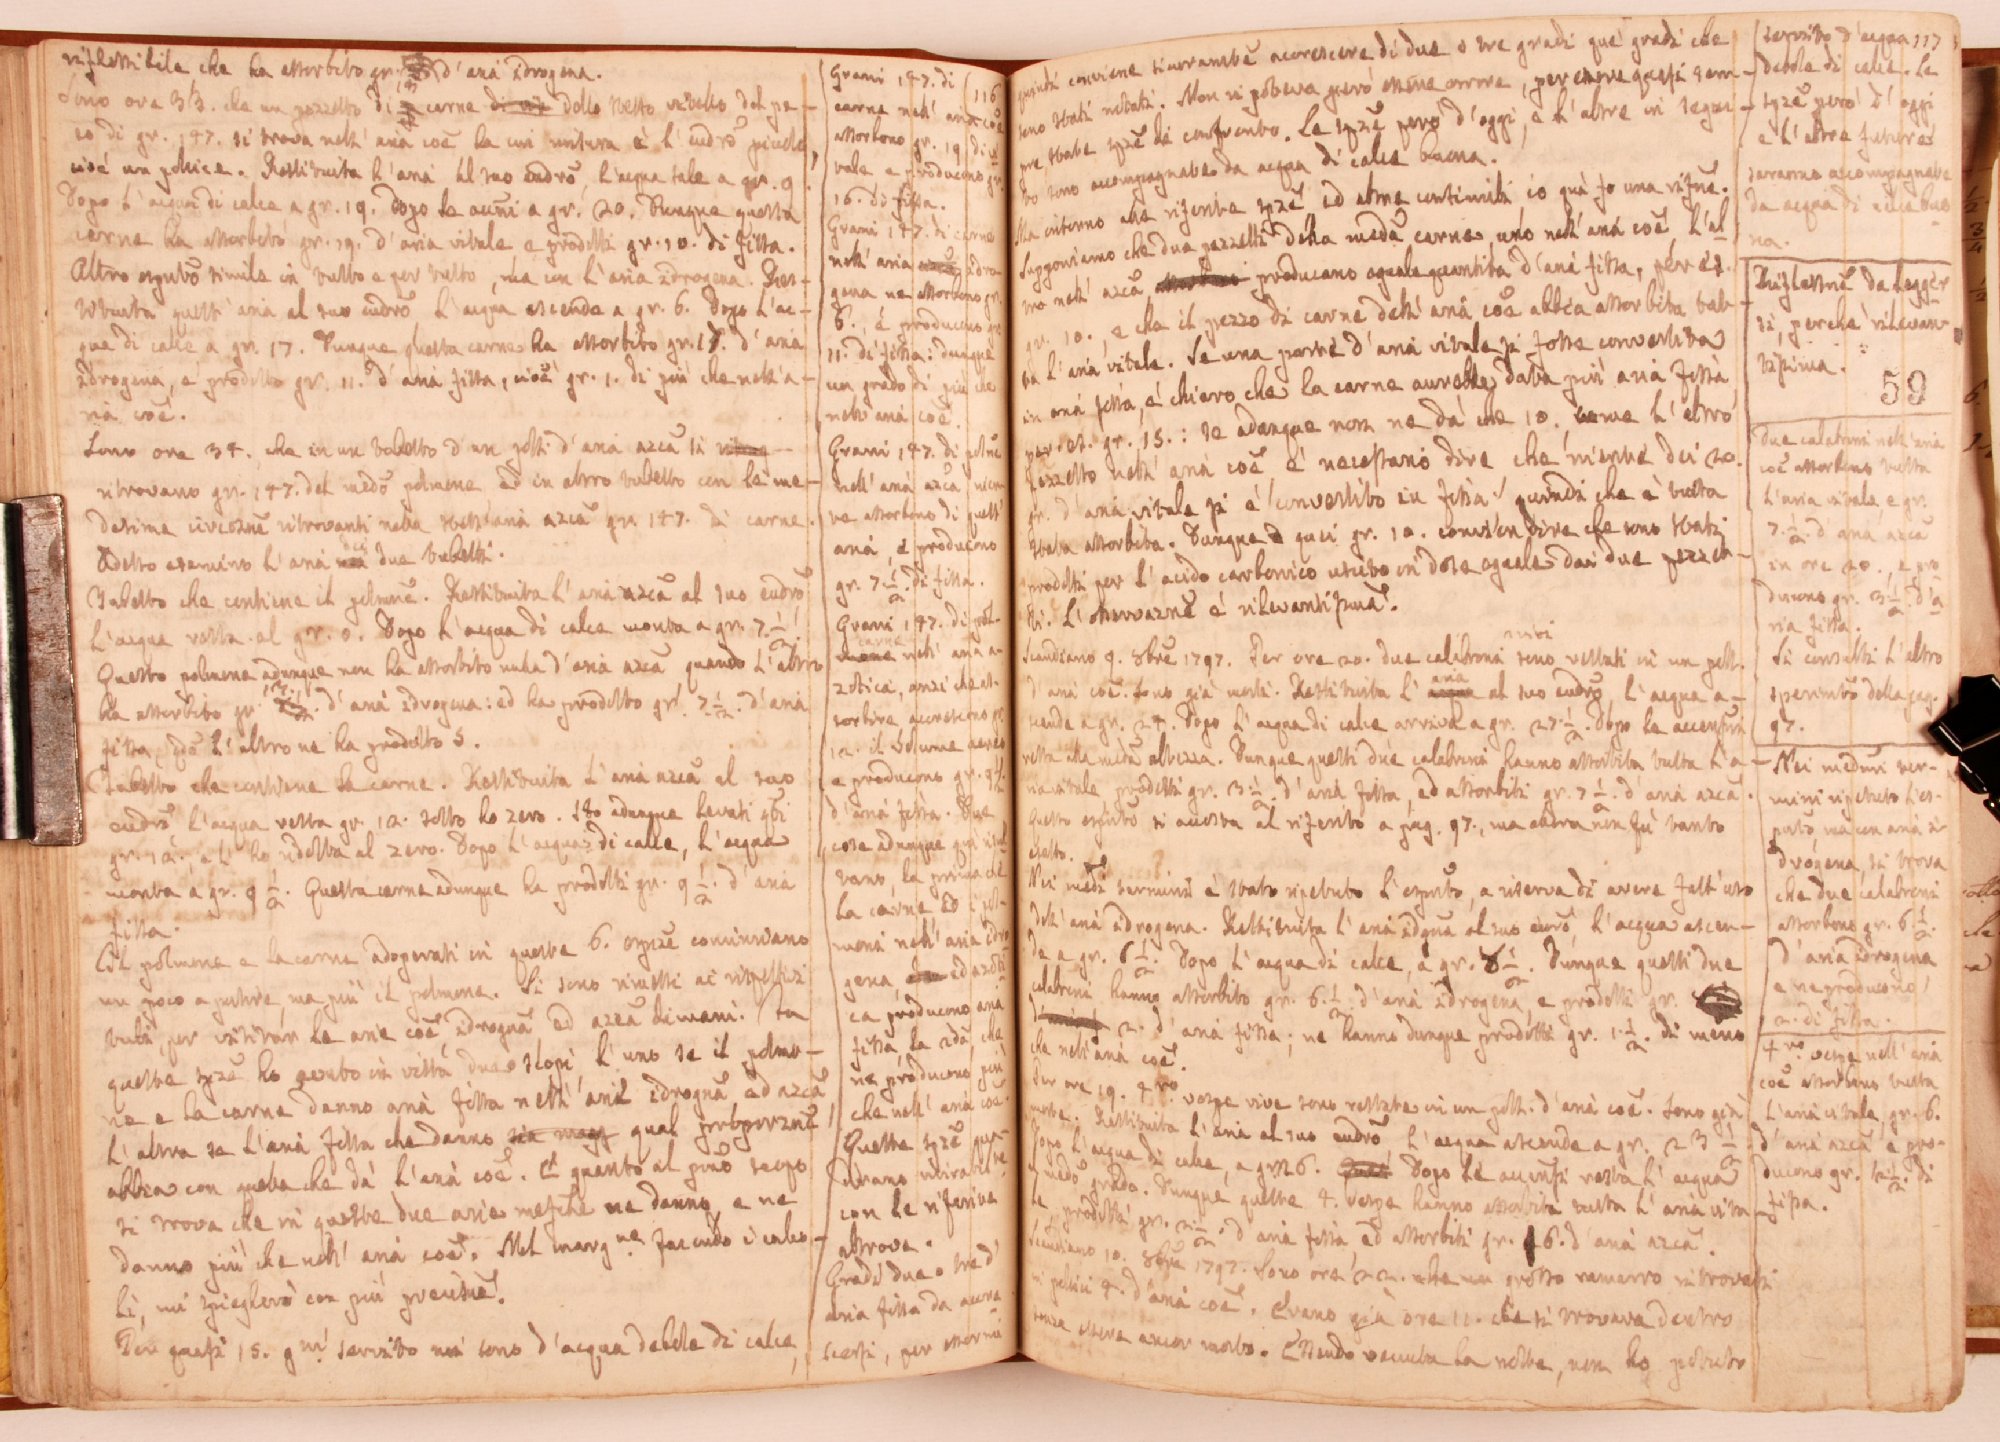 riflessibile che ha assorbito gr. d'aria idrogena.
Sono ore 33. che un pezzetto di carne dello stesso vitello del pe-
so di gr. 147. si trova nell' aria coē la cui misura è l' eudrō piccolo,
cioè un pollice. Restituita l' aria al suo eudrō, l'acqua sale a gr. 9.
Dopo l' acqua di calce a gr. 19. Dopo le accn̄i a gr. 20. Dunque questa
carne ha assorbito gr. 19. d' aria vitale e prodotti gr. 10. di fissa.
Altro espūto simile in tutto e per tutto, ma con l' aria idrogena. Res-
tituita quest' aria al suo eudrō l' acqua ascende a gr. 6. Dopo l' ac-
qua di calce a gr. 17. Dunque questa carne ha assorbito gr. d' aria
idrogena, e prodotto gr. 11. d' aria fissa, cioè gr. 1. di più che nell' a-
ria coē.
Sono ore 34. che in un tubetto d' un poll. d' aria azcā si
ritrovano gr. 147. del medō polmone ed in altro tubetto con le me-
desime circoznē ritrovanti nella stess' aria azcā gr. 147. di carne.
Adesso esamino l' aria dei due tubetti.
Tubetto che contiene il polmnē. Restituita l' aria azcā al suo eudrō
l' acqua resta al gr. 0. Dopo l' acqua di calce monta a gr. 7 1/2.
Questo polmone adunque non ha assorbito nulla d' aria azcā, quando l' altro
ha assorbito gr. d' aria idrogena: ed ha prodotto gr. 7 1/2. d' aria
fissa, l' altro ne ha prodotto 5.
Tubetto che contiene la carne. Restituita l' aria azcā al suo
eudrō, l' acqua resta gr. 12. sotto lo zero. Ho adunque levati
gr. 12., e l' ho ridotta al zero. Dopo l' acqua di calce, l' acqua
monta a gr. 9 1/2. Questa carne adunque ha prodotti gr. 9 1/2. d' aria
fissa.
Il polmone e la carne adoperati in queste 6. espzē cominciano
un poco a putire, ma più il polmone. Si sono rimessi ai rispettivi
tubi, per visitar le arie coē idrognā ed azcā dimani. In
queste spzē ho avuto in vista due scopi, l' uno se il polmo-
ne e la carne danno aria fissa nell' aria idrognā, ed azcā
l' altra se l' aria fissa che danno qual proporznē
abbia con quella che dà l' aria coē. E quanto al prīo scopo
si trova che in queste due arie mefiche ne danno, e ne
danno più che nell' aria coē. Nel margne facendo i calco-
li, mi spiegherò con più precisnē.
Per quasi 15. gni servito mi sono d' acqua debole di calce,
Grani 147. di
carne nell' aria coē
assorbono gr. 19. di vi
tale e producono gr.
10. di fissa.
Grani 147. di carne
nell' aria idro
gena ne assorbono gr.
6., e producono gr.
11. di fissa: dunque
un grado di più che
nell' aria coē.
Grani 147. di polmnē
nell' aria azcā nien
te assorbono di quest'
aria, e producono
gr. 7 1/2. di fissa.
Grani 147. di
carne nell' aria a-
zotica, anzi che as-
sorbire, accrescono gr.
12. il volume aereo
e producono gr. 9 1/2
d' aria fissa. Due
cose adunque qui
la prima che
la carne ed i pol-
moni nell' aria idro
gena, ed azoti
ca producono aria
fissa, la 2da, che
ne producono più
che nell' aria coē.
Queste spzē
con le riferite
altrove.
Gradi due o tre d'
aria fissa da accre
scersi, per essermi
116
quindi conviene sicuramtē accrescere di due o tre gradi que' gradi che
sono stati notati. Non vi poteva però essere errore, per essere quasi sem-
pre state spzē di confronto. Le spzē però d' oggi, e l' altre in segui-
to sono accompagnate da acqua di calce buona.
Ma intorno alle riferite spzē ed altre consimili io quà fo una riflnē.
Supponiamo che due pezzetti della medā carne, uno nell' aria coē, l' al
tro nell' azcā producano eguale quantità d' aria fissa, per es.
gr. 10., e che il pezzo di carne dell' aria coē abbia assorbita tut-
ta l' aria vitale. Se una parte d' aria vitale si fosse convertita
in aria fissa, è chiaro che la carne avrebbe data più aria fissa
per es. gr. 15.: se adunque non ne dà che 10. come l' altro
pezzetto nell' aria coē è necessario dire che niente dei 20.
gr. d' aria vitale si è convertito in fissa: quindi che è tutta
stata assorbita. Dunque quei gr. 10. convien dire che sono stati
prodotti per l' acido carbonico uscito in dose eguale dai due pezzet-
ti. L' osservaznē è rilevantissimā.
Scandiano 9. 8bre 1797. Per ore 20. due calabroni vivi sono restati in un poll.
d' aria coē. Sono già morti. Restituita l' aria al suo eudrō, l' acqua a-
scende a gr. 24. Dopo l' acqua di calce arriva a gr. 27 1/2. Dopo le accensni
resta alla medā altezza. Dunque questi due calabroni hanno assorbita tutta l' a-
ria vitale prodotti gr. 3 1/2. d' aria fissa, ed assorbiti gr. 7 1/2. d' aria azcā.
Questo espūto si accosta al riferito a pag. 97., ma allora non fu tanto
esatto.
Nei medi termini è stato ripetuto l' espūto, a riserva di avere fatt' uso
dell' aria idrogena. Restituita l' aria idgnā al suo eudrō, l' acqua ascen-
de a gr. 6 1/2. Dopo l' acqua di calce, a gr. 8 1/2. Dunque questi due
calabroni hanno assorbito gr. 6 1/2. d' aria idrogena, e prodotti gr.
2. d' aria fissa; ne hanno dunque prodotti gr. 1 1/2. di meno
che nell' aria coē.
Per ore 19. 4ro vespe vive sono restate in un poll. d' aria coē. Sono già
morte. Restituita l' aria al suo eudrō l' acqua ascende a gr. 23 1/2.
Dopo l' acqua di calce, a gr. 26. Dopo le accensi resta l' acqua
medō grado. Dunque queste 4. vespe hanno assorbita tutta l' aria vita-
le, prodotti gr. 2 1/2. d' aria fissa, ed assorbiti gr. 6. d' aria azcā.
Scandiano 10. 8bre 1797. Sono ore 22. che un grosso ramarro ritrovasi
in pollici 4. d' aria coē. Erano già ore 11. che si trovava dentro
senza essere ancor morto. Essendo venuta la notte, non ho potuto
servito d' acqua 117
debole di calce. Le
spzē però d' oggi
e l' altre future
saranno accompagnate
da acqua di calce buo
na.
Riflessnē da legger
si, perchè rilevan-
tissima.
59
Due calabroni nell' aria
coē assorbono tutta
l' aria vitale e gr.
7 1/2. d' aria azcā
in ore 20., e pro
ducono gr. 3 1/2. d' a
ria fissa.
Si consulti l' altro
sperimtō della pag.
97.
Nei medmi ter-
mini ripetuto l' es-
pūto ma con aria i-
drogena, si trova
che due calabroni
assorbono gr. 6 1/2.
d' aria idrogena
e ne producono
2. di fissa.
4ro vespe nell' aria
coē assorbono tutta
l' aria vitale, gr. 6.
d' aria azcā e pro-
ducono gr. 2 1/2. di
fissa.